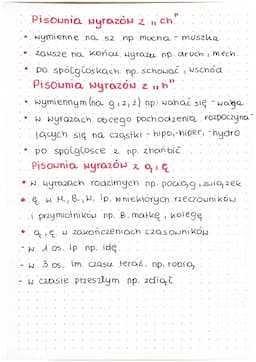 Pisownia wyrazów z „ch"
• wymienne na sz np mucha - muszka
• zawsze na końcu wyrazu np. druch, mech
• po spółgłoskach np. schować, wschód
Pisownia wyrazów z „h"
• wymiennym (na g, z, ż) np: wahać się - waga
• w wyrazach obcego pochodzenia rozpoczyna
jących się na cząstki - hipo,-hiper, -hydro
• po spółgłosce z np. zhańbić
Pisownia wyrazów z ą, ę
• w wyrazach rodzimych np. pociąg, związek
• ę w M., B., W. lp. w niektórych rzeczowników
i przymiotników np. B. matkę, kolegę
• ą, ę w zakończeniach czasowników
- w 1 os. lp np. idę
- w 3 os. lm czasu teraź. np. robią,
- w czasie przeszłym np. zdjął